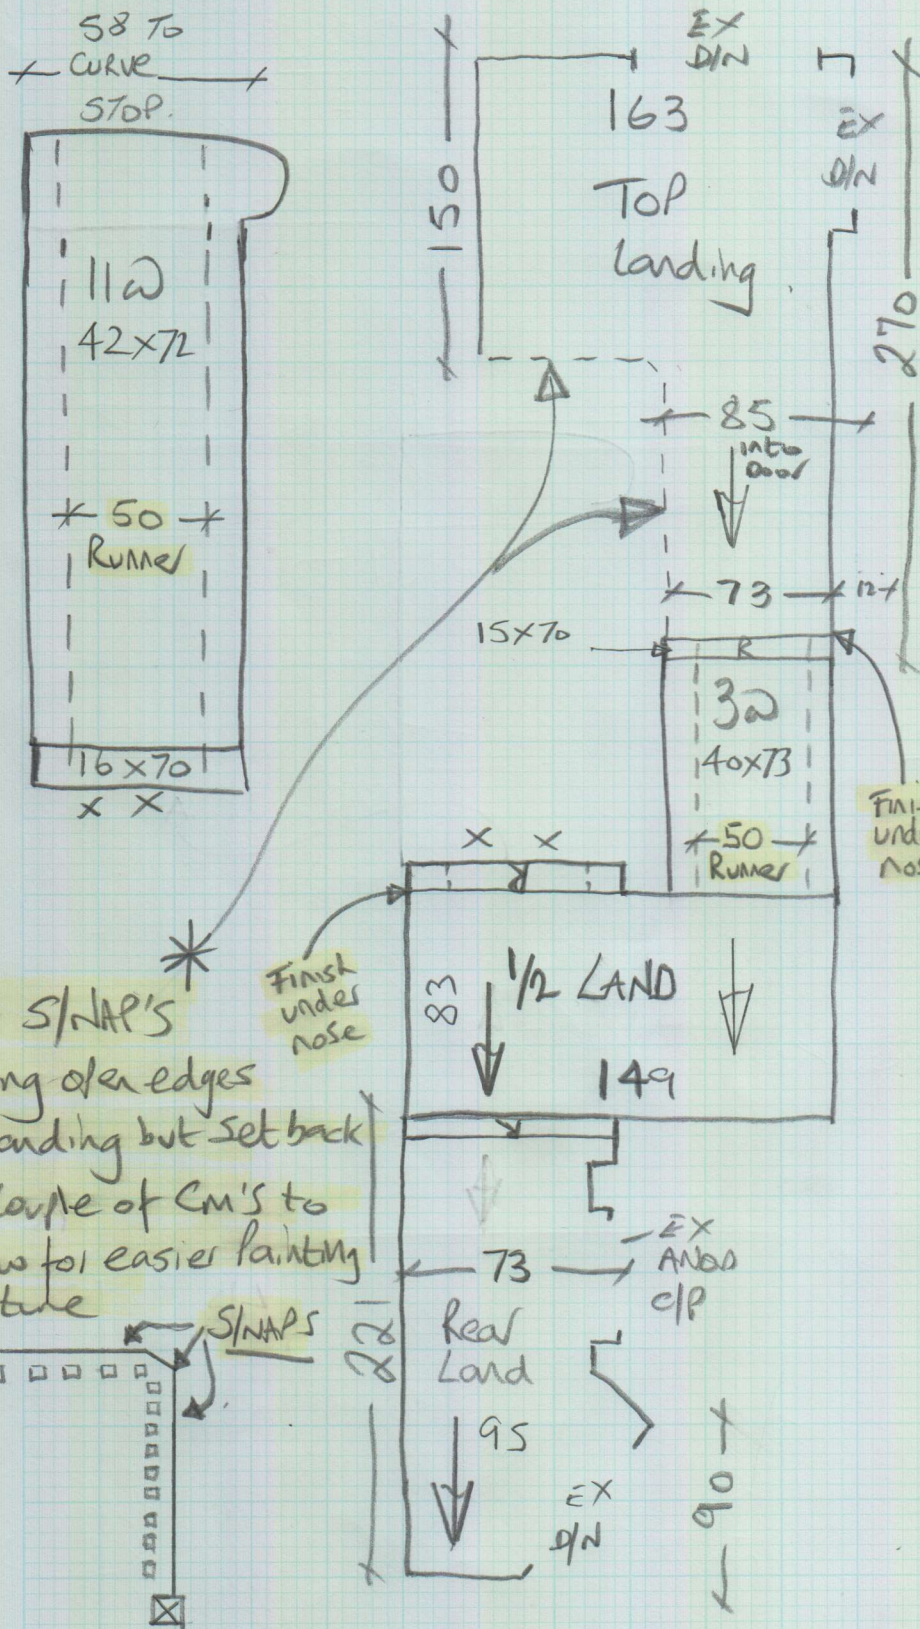 58 TO
CURVE
STOP.
11W
42x72
50
Runner
16x70
x x
EX
D/N
163
TOP
Landing
EX
D/N
150
270
85
into
Door
73
12
15x70
R
3W
40x73
50
Runner
Finish
under
nose
x x
R
Finish
under
nose
83
1/2 LAND
149
S/NAP'S
edges
but set back
Couple of CM'S to
for easier Painting
S/NAPS
221
73
EX
C/P
Rear
Land
95
EX
D/N
90